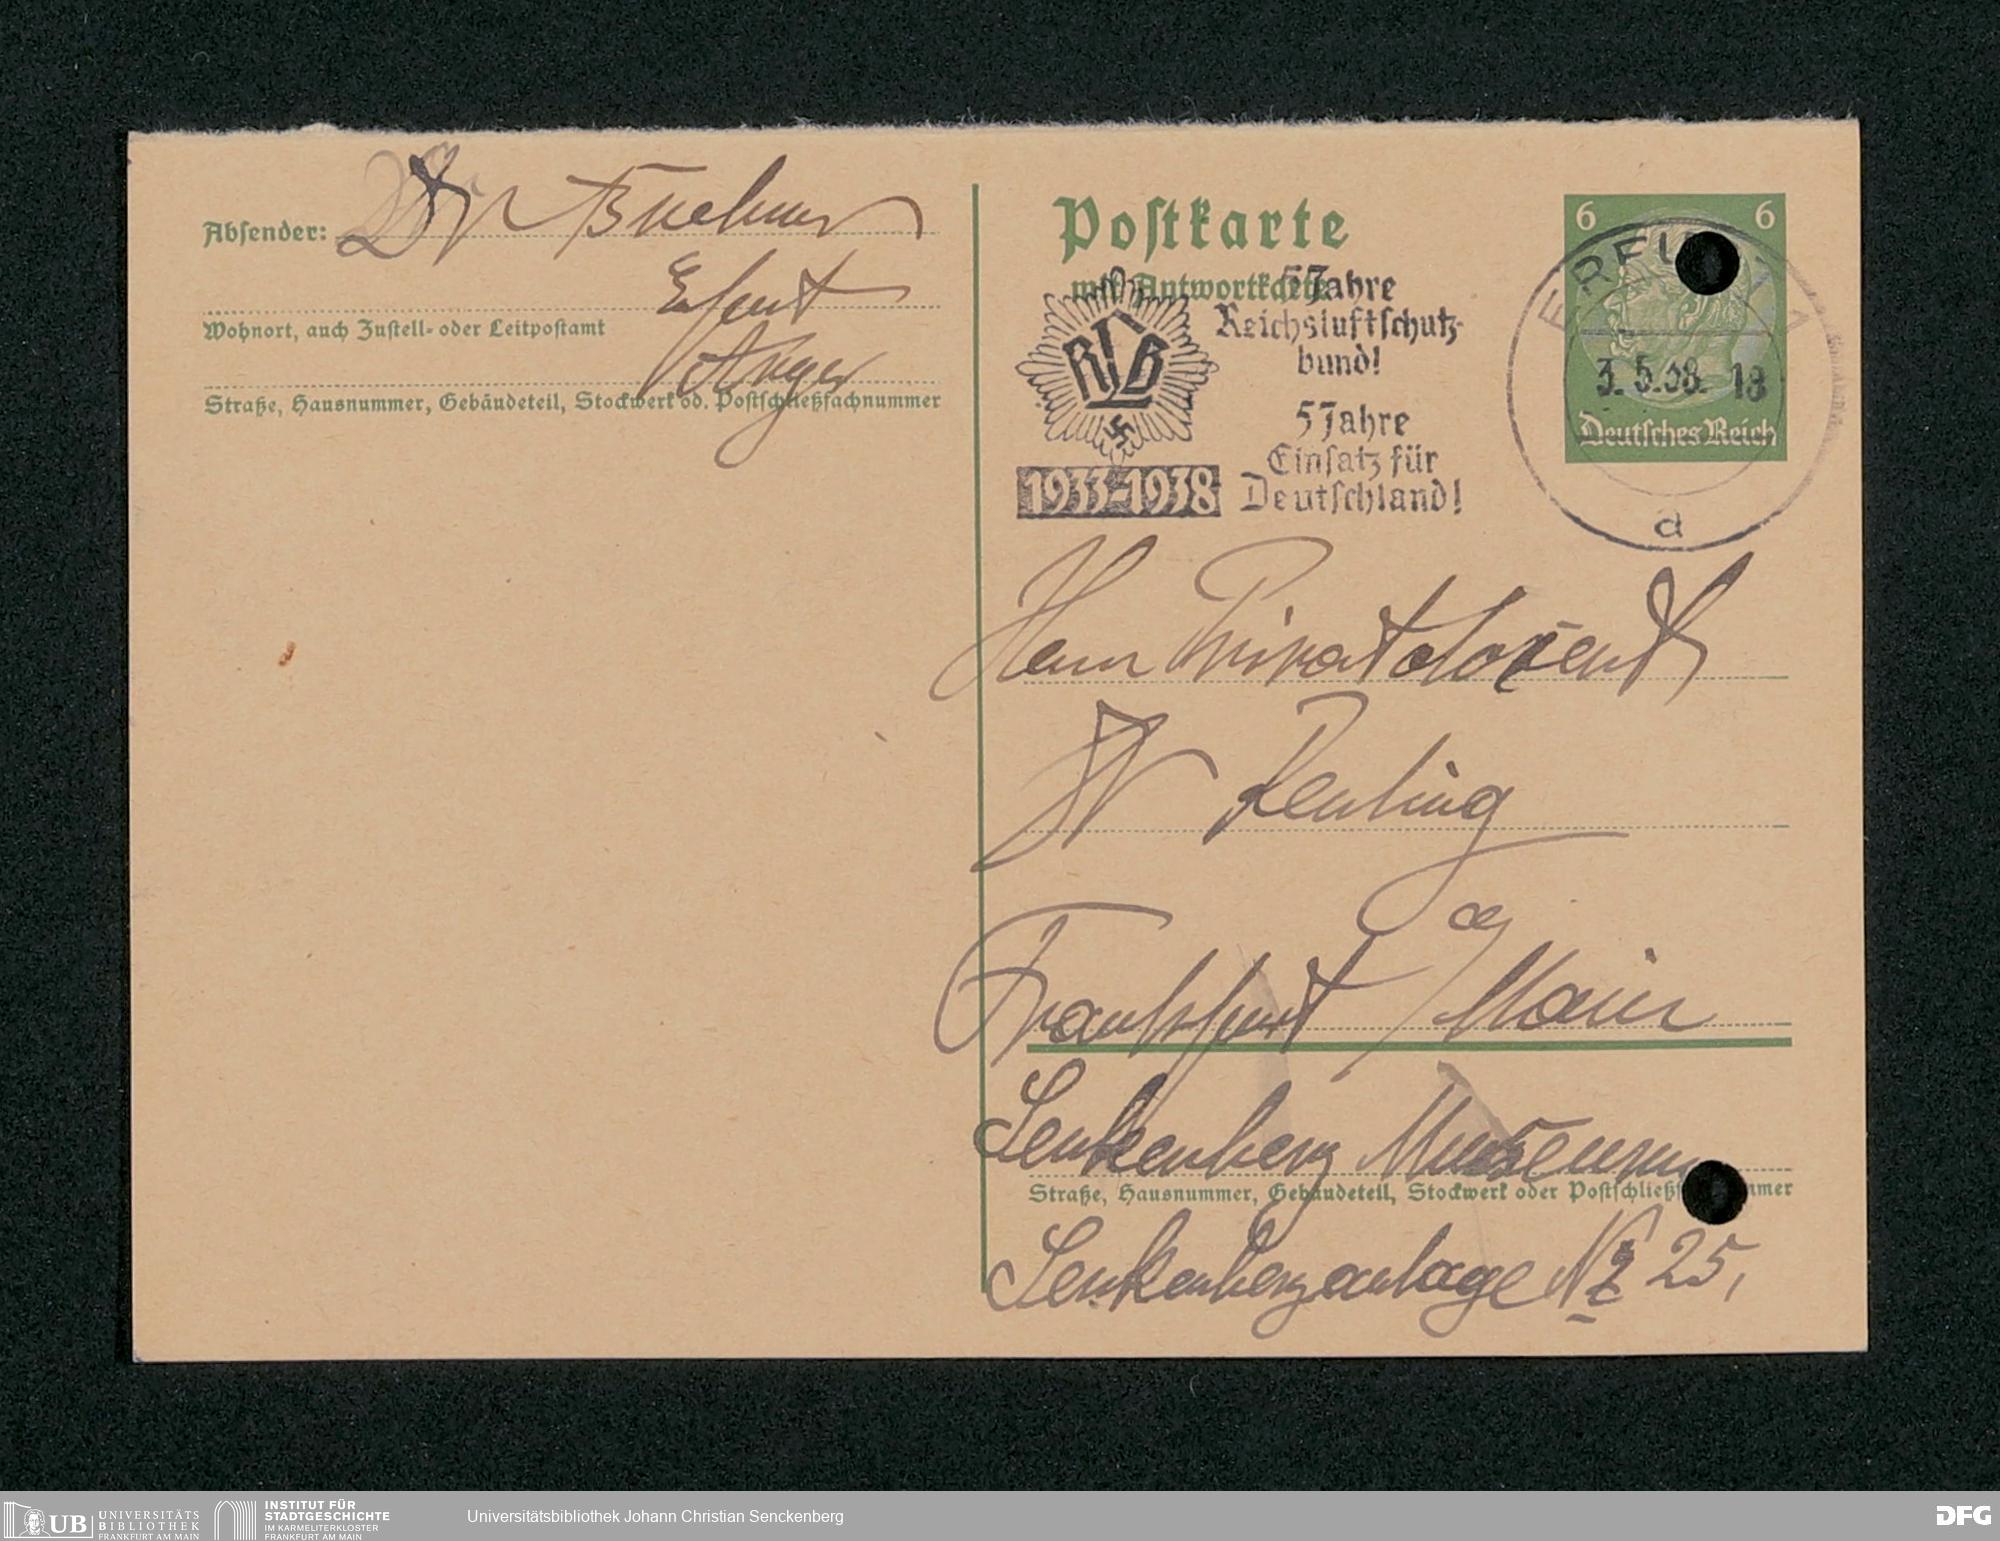 Absender: Dr Buehner
Erfurt
Wohnort, auch Zustell- oder Leitpostamt
Anger
Straße, Hausnummer, Gebäudeteil, Stockwerk od. Postschließfachnummer
Postkarte
mit Antwortkarte
5 Jahre
Reichsluftschutz-
bund!
5 Jahre
Einsatz für
Deutschland!
RLB
1933-1938
6 6
ERFURT
3.5.38. 18
Deutsches Reich
d
Herrn Privatdozent
Dr
Frankfurt a/Main
Senkenberg Museum
Straße, Hausnummer, Gebäudeteil, Stockwerk oder
Senkenberganlage Nr 25,
UB UNIVERSITÄTS
BIBLIOTHEK
FRANKFURT AM MAIN
INSTITUT FÜR
STADTGESCHICHTE
IM KARMELITERKLOSTER
FRANKFURT AM MAIN
Universitätsbibliothek Johann Christian Senckenberg
DFG